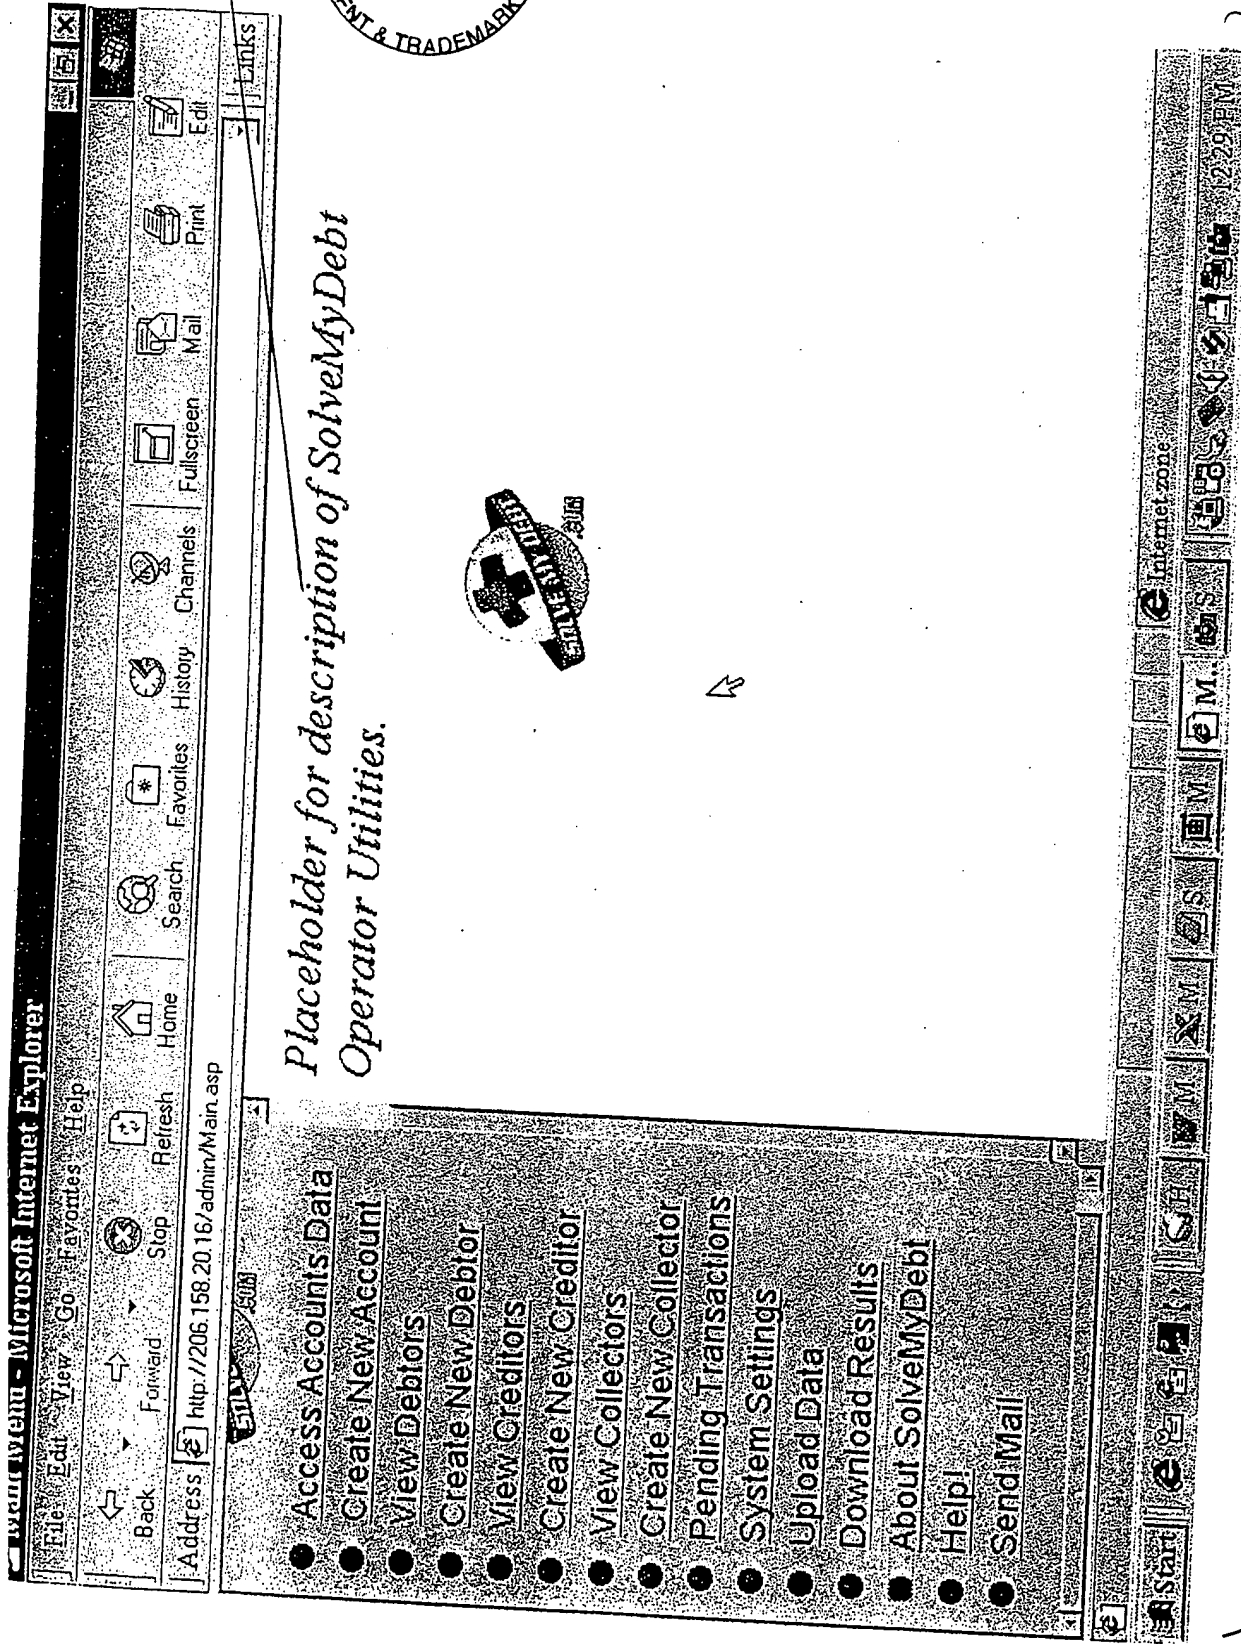 Main Menu - Microsoft Internet Explorer
File Edit View Go Favorites Help
Back Forward Stop Refresh Home Search Favorites History Channels Fullscreen Mail Print Edit
Address http://206.158.20.16/admin/Main.asp Links
.COM
Access Accounts Data
Create New Account
View Debtors
Create New Debtor
View Creditors
Create New Creditor
View Collectors
Create New Collector
Pending Transactions
System Settings
Upload Data
Download Results
About SolveMyDebt
Help!
Send Mail
Placeholder for description of SolveMyDebt
Operator Utilities.
SOLVE MY DEBT
.COM
Internet zone
Start H W M X M S M M.. S 12:29 PM
ENT & TRADEMARK